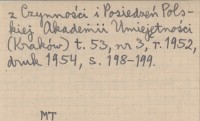 z Czynności i Posiedzeń Pols-
kiej Akademii Umiejętności
(Kraków) t. 53, nr 3, r. 1952,
druk 1954, s. 198-199.
MT